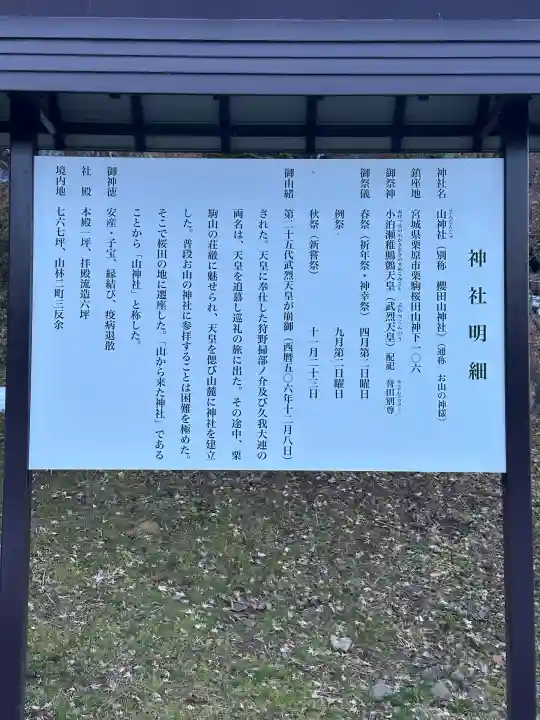 神社明細
神社名　山神社（別称　櫻田山神社）（通称　お山の神様）
鎮座地　宮城県栗原市栗駒桜田山神下一〇六
御祭神　小泊瀬稚鷦鷯天皇（武烈天皇）配祀　誉田別尊
御祭儀　春祭（祈年祭・神幸祭）　四月第二日曜日
例祭　九月第二日曜日
秋祭（新嘗祭）　十一月二十三日
御由緒　第二十五代武烈天皇が崩御（西暦五〇六年十二月八日）
された。天皇に奉仕した狩野掃部ノ介及び久我大連の
両名は、天皇を追慕し巡礼の旅に出た。その途中、栗
駒山の荘厳に魅せられ、天皇を偲び山麓に神社を建立
した。普段お山の神社に参拝することは困難を極めた。
そこで桜田の地に遷座した。「山から来た神社」である
ことから「山神社」と称した。
御神徳　安産・子宝、縁結び、疫病退散
社　殿　本殿一坪、拝殿流造六坪
境内地　七六七坪、山林二町三反余